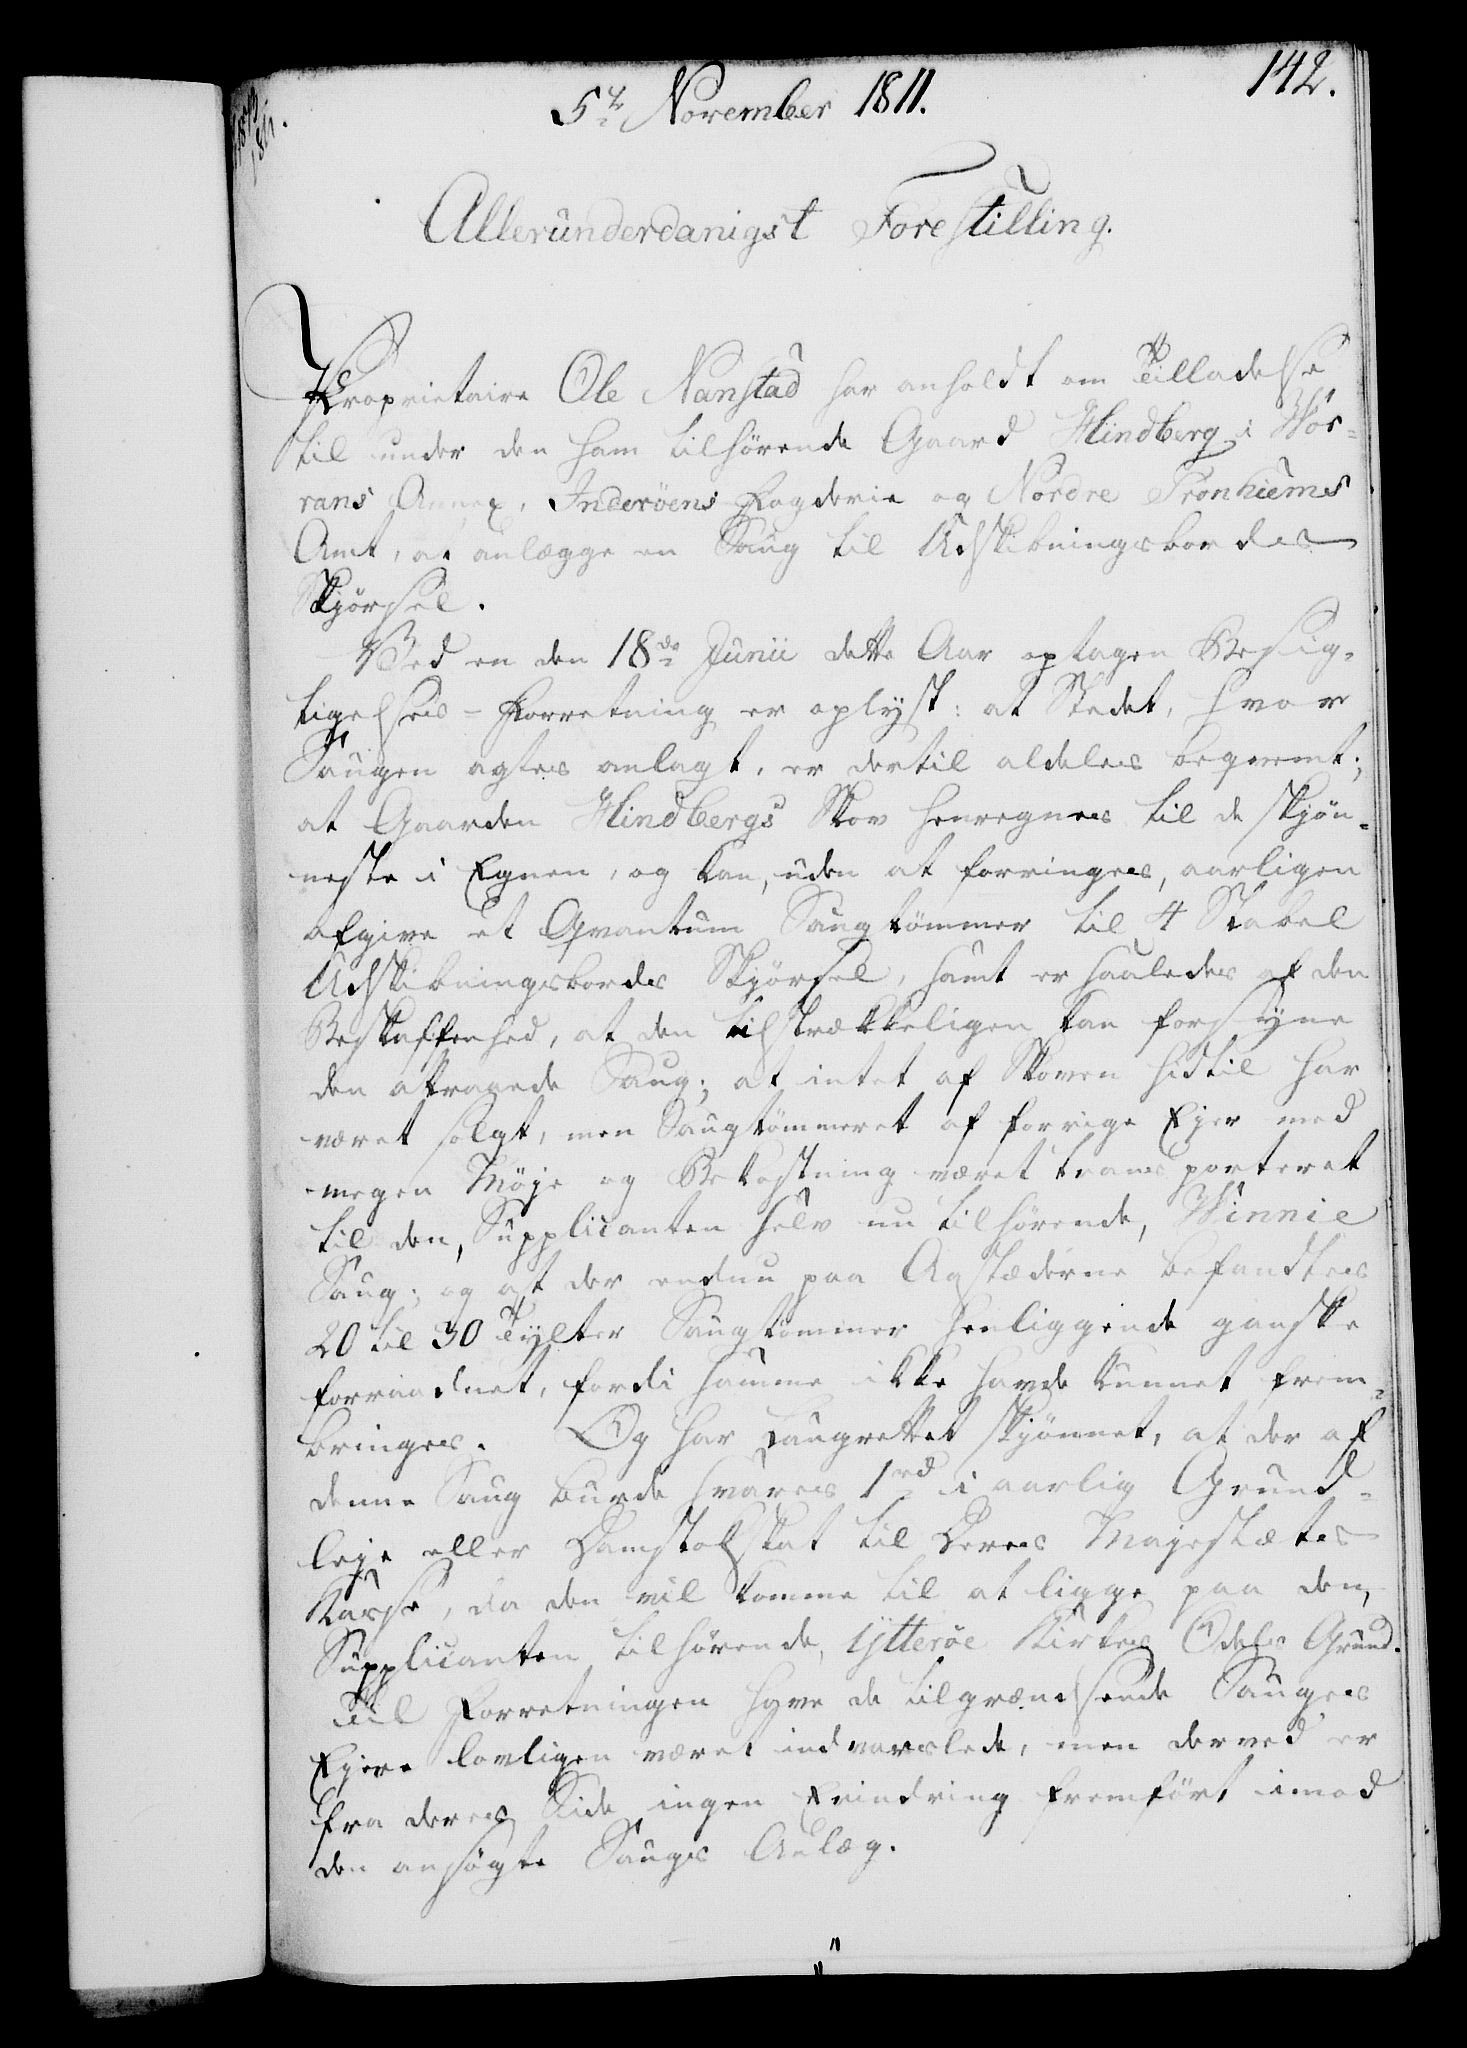 142.
5te November 1811.
Allerunderdanigst Forestilling.
Proprietaire Ole Nanstad har anholdt om Tilladelse
til under den ham tilhørende Gaard Hindberg i Wær-
rans Annex, Inderøens Fogderie og Nordre Tronhiems
Amt, at anlægge en Saug til Udskibningsbordes
Skjørsel.
Ved en den 18de Junii dette Aar optagen Besig-
tigelses-Forretning er oplyst: at Stedet, hvor
Saugen agtes anlagt, er dertil aldeles beqvemt;
at Gaarden Hindbergs Skov henregnes til de skjøn-
neste i Egnen, og kan, uden at forringes, aarligen
afgive et Qvantum Saugtømmer til 4 Stabel
Udskibningsbordes Skjørsel, samt er saaledes af den
Beskaffenhed, at den tilstrækkeligen kan forsyne
den attraaede Saug; at intet af Skoven hidtil har
været solgt, men Saugtømmeret af forrige Ejer med
megen Møje og Bekostning været transporteret
til den, Supplicanten selv nu tilhørende, Winnie
Saug; og at der endnu paa Aastæderne befandtes
20 til 30 Tylter Saugtømmer henliggende ganske
forraadnet, fordi samme ikke havde kunnet frem-
bringes. Og har Laugrettet skjønnet, at der af
denne Saug burde svares 1 rd i aarlig Grund-
leje eller Damstokskat til Deres Majestæts
Kasse, da den vil komme til at ligge paa den,
Supplicanten tilhørende, Ytterøe Kirkes Odels Grund.
Til Forretningen have de tilgrændsende Sauges
Ejere lovligen været indvarslede, men derved er
fra deres Side ingen Erindring fremført imod
den ansøgte Saugs Anlæg.